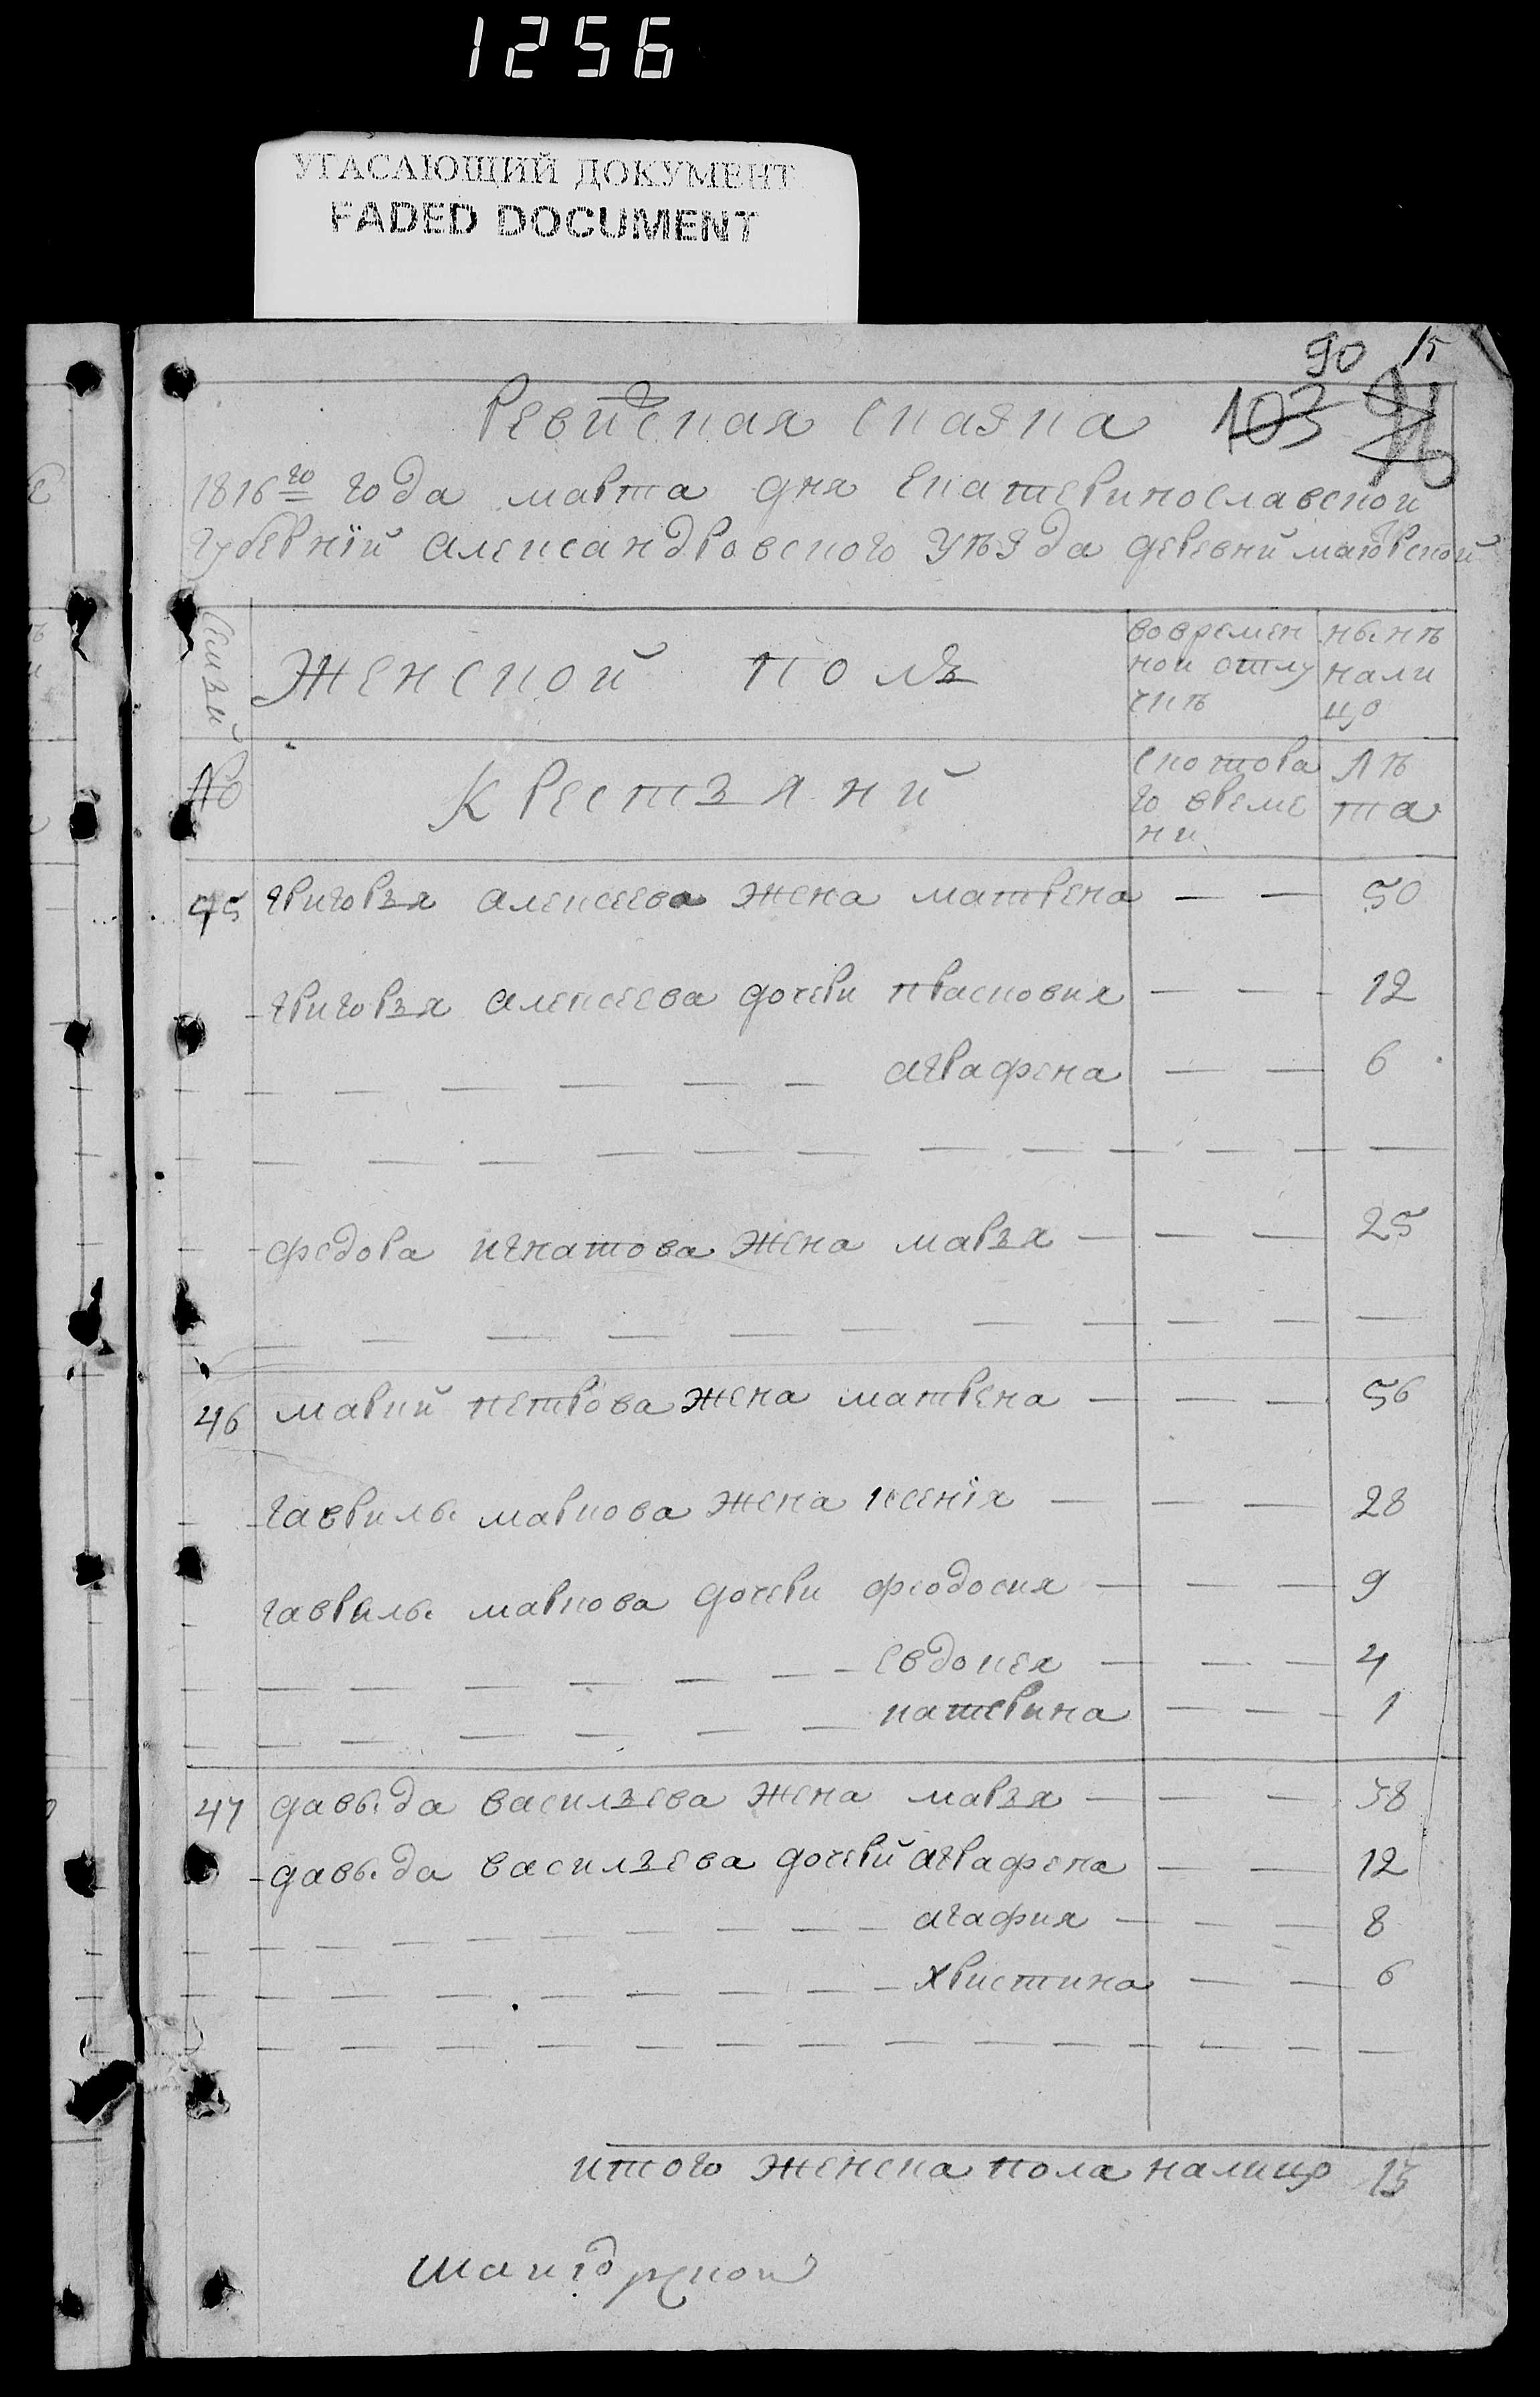 1256
УГАСАЮЩИЙ ДОКУМЕНТ
FADED DOCUMENT
90 15
Ревиская скаска 103
1816го года марта дня Екатеринославской
губернїй александровского уѣзда деревнй маіорской
Семьи
Женской полъ
вовремен
ной отлу
чкѣ
нынѣ
нали
цо
№
Крестьяни
скотора
го време
ни
лѣ
та
45 григорья алексеева жена матрена — — 50
григорья алексеева дочери прасковия — — 12
аграфена — — 6
федора игнатова жена марья — — — 25
46 маркй петрова жена матрена — — — 56
гаврилы маркова жена ксенїя — — — 28
гаврилы маркова дочери феодосия — — — 9
евдокея — — — 4
катерина — — — 1
47 давыда васильева жена марья — — — 38
давыда васильева дочерй аграфена — — 12
агафия — — — 8
христина — — 6
итого женска пола налицо 13